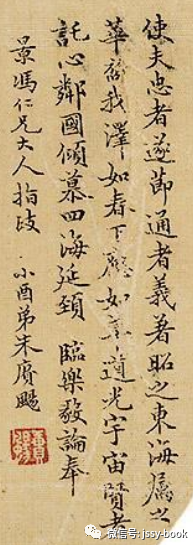 使夫忠者遂節通者義著昭之東海屬之
華裔我澤如春下應如草道光宇宙賢者
託心鄰國傾慕四海延頸 臨樂毅論奉
景馮仁兄大人指疵 小酉弟朱賡颺
微信号: jssy-book